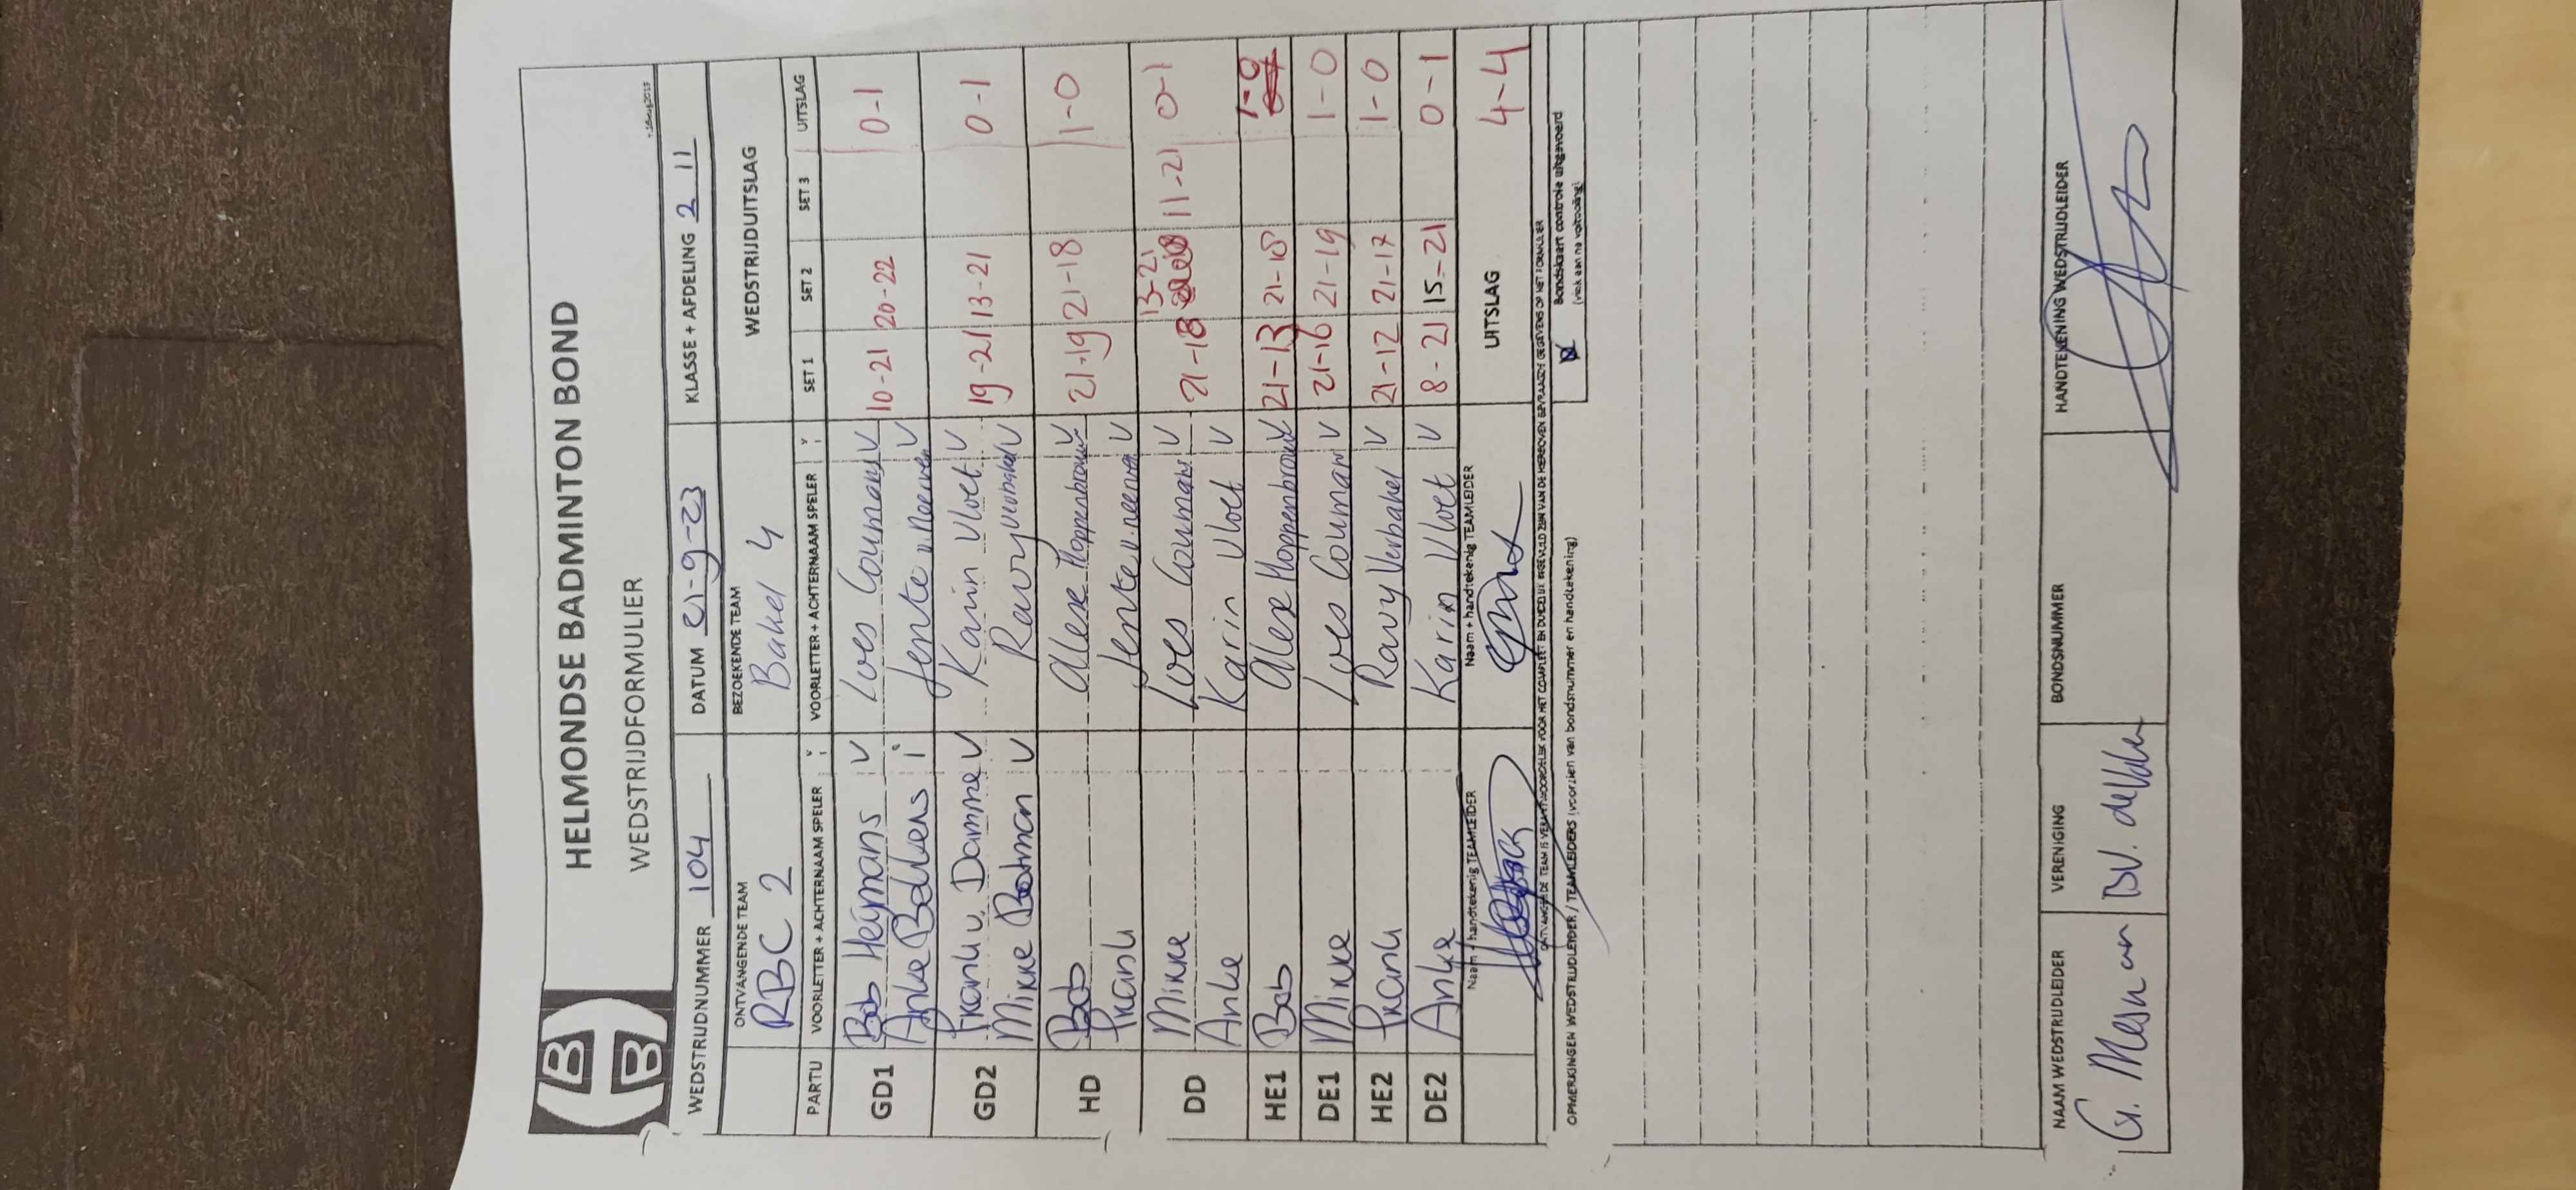 HELMONDSE BADMINTON BOND
WEDSTRIJDFORMULIER
WEDSTRIJDNUMMER 104 DATUM 21-9-23 KLASSE + AFDELING 2 11
ONTVANGENDE TEAM BEZOEKENDE TEAM WEDSTRIJDUITSLAG
RBC 2 Bakel 4
PARTIJ VOORLETTER + ACHTERNAAM SPELER VOORLETTER + ACHTERNAAM SPELER SET 1 SET 2 SET 3 UITSLAG
GD1 Bob Heijmans V Loes Coumans V 10-21 20-22 0-1
Anke i Jente v. Neerven V
GD2 Frank v. Damme V Karin Vloet V 19-21 13-21 0-1
Mikke V Ravy Verbakel V
HD Bob Alex Hoppenbrouw V 21-19 21-18 1-0
Frank Jente v. neerven V
DD Mikke Loes Coumans V 21-18 13-21 11-21 0-1
Anke Karin Vloet V
HE1 Bob Alex Hoppenbrouw V 21-13 21-18 1-0
DE1 Mikke Loes Coumans V 21-16 21-19 1-0
HE2 Frank Ravy Verbakel V 21-12 21-17 1-0
DE2 Anke Karin Vloet V 8-21 15-21 0-1
Naam + handtekenig TEAMLEIDER Naam + handtekenig TEAMLEIDER UITSLAG 4-4
ONTVANGENDE TEAM IS VERANTWOORDELIJK VOOR HET COMPLEET EN DUIDELIJK INGEVULD ZIJN VAN DE HIERBOVEN GEVRAAGDE GEGEVENS OP HET FORMULIER
OPMERKINGEN WEDSTRIJDLEIDER / TEAMLEIDERS (voorzien van bondsnummer en handtekening)
Bondskaart controle uitgevoerd
(vink aan na voltooiing)
NAAM WEDSTRIJDLEIDER VERENIGING BONDSNUMMER HANDTEKENING WEDSTRIJDLEIDER
G. Mesman BV.